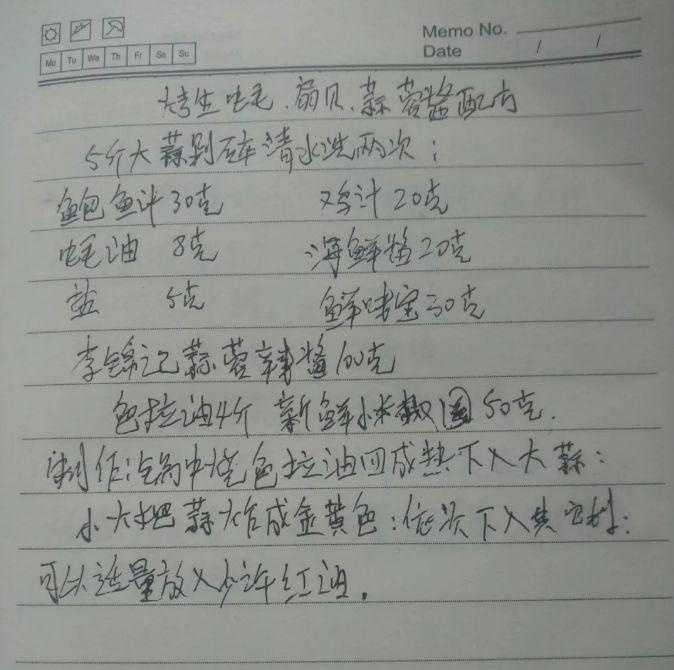 Memo No.
Date / /
Mo Tu We Th Fr Sa Su
烤生蚝、扇贝、蒜蓉酱配方
5个大蒜剁碎清水洗两次:
鲍鱼汁30克 鸡汁20克
蚝油 8克 海鲜酱20克
盐 5克 鲜味宝30克
李锦记蒜蓉辣酱100克
色拉油4个 新鲜小米椒圈50克.
制作:锅中烧色拉油四成热下入大蒜:
小火把蒜炸成金黄色:依次下入其它料:
可以适量放入少许红油.